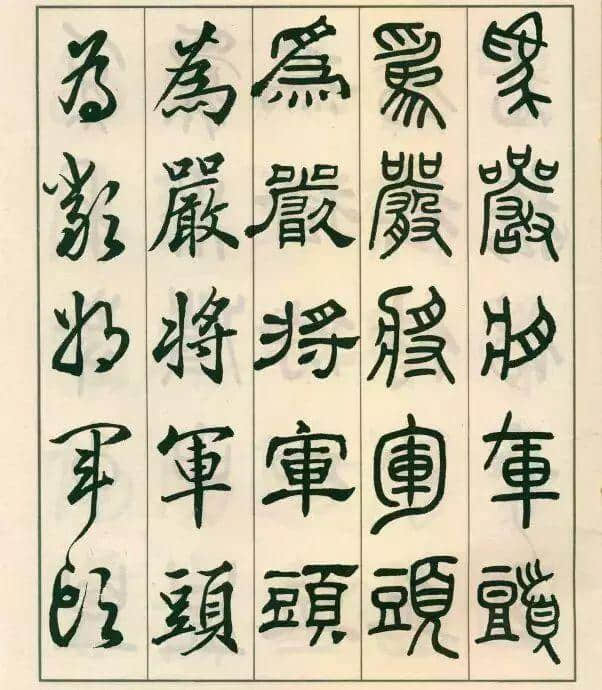 爲嚴將軍頭
爲嚴將軍頭
爲嚴將軍頭
為嚴將軍頭
為嚴將軍頭